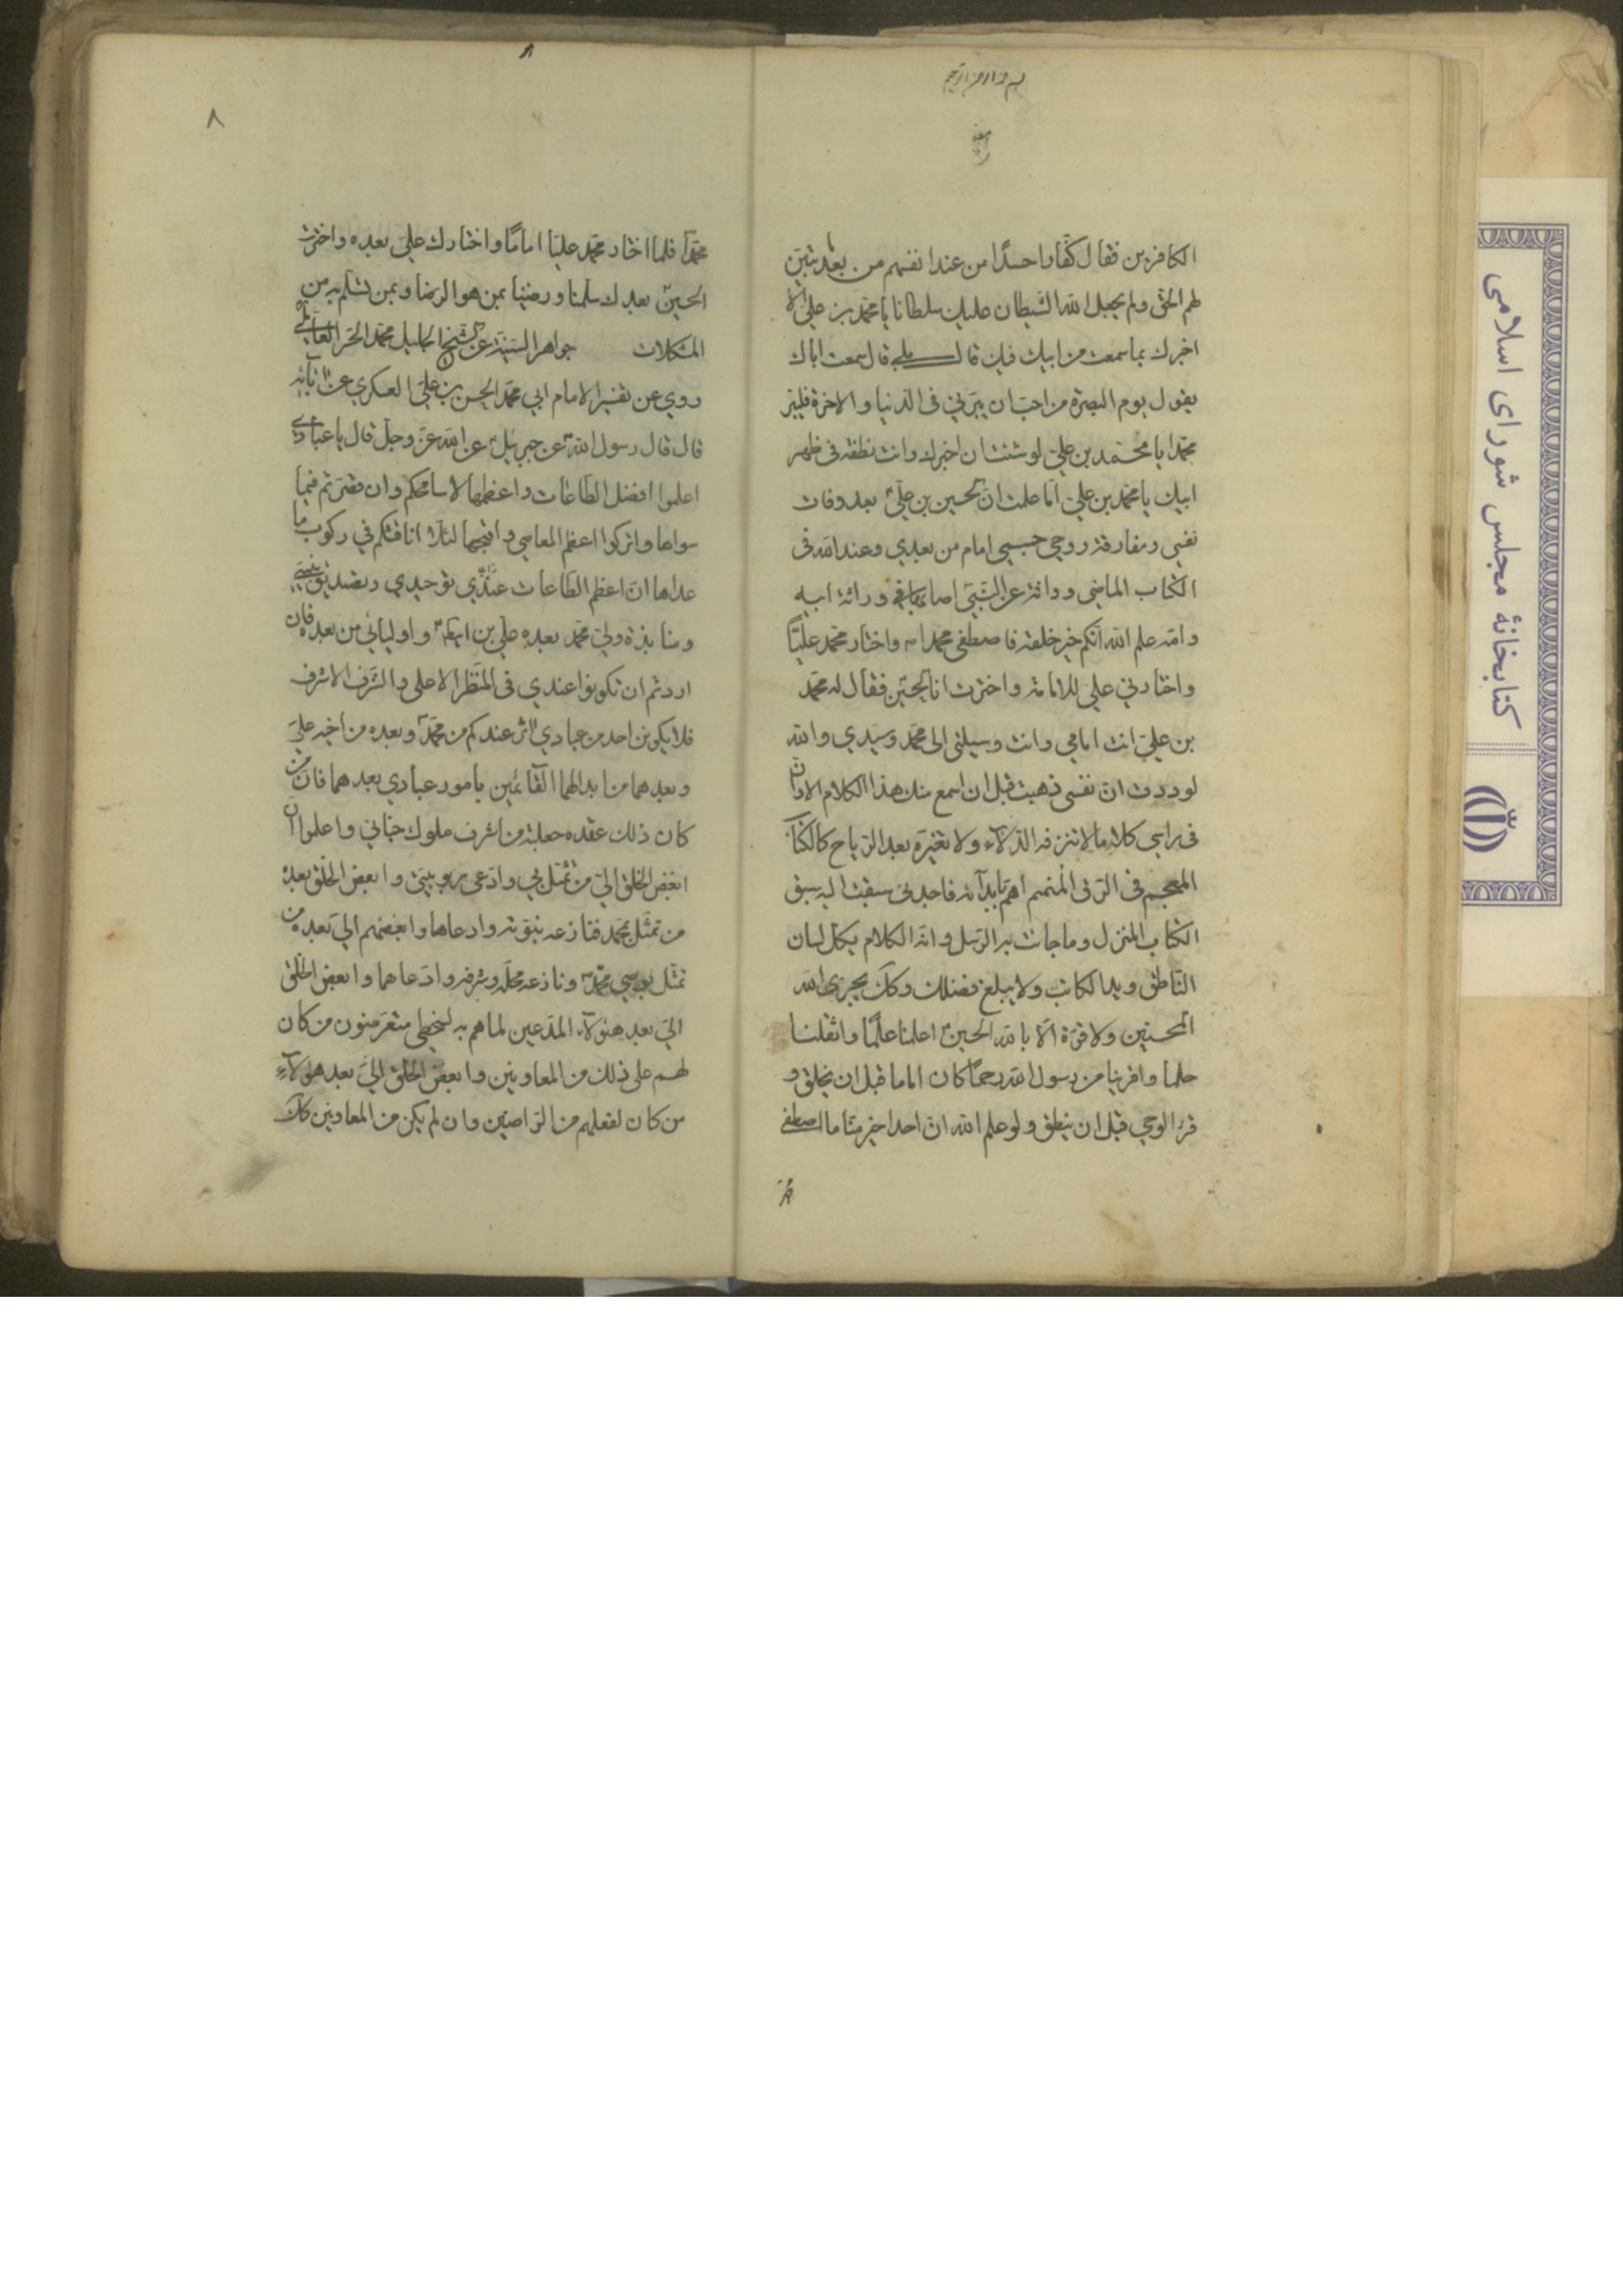 بسم الله الرحمن الرحیم
الكافرين فقال كفارا حسدًا من عند انفسهم من بعد تبيّن
لهم الحق ولم يجعل الله الشيطان عليك سلطانا يا محمد بن علي الا
اخبرك بما سمعت من ابيك فيك قال بلى قال سمعت اباك
يقول يوم البصرة من احبّ ان يبرّني في الدنيا والاخرة فليبر
محمدا يا محمد بن علي لو شئت ان اخبرك وانت نطفة في ظهر
ابيك يا محمد بن علي اما علمت ان الحسين بن علي بعد وفات
نفسي ومفارقة روحي جسمي امام من بعدي وعند الله في
الكتاب الماضي وراثة عن النبي اصابها في وراثة ابيه
وامه علم الله انكم خير خلقه فاصطفى محمدا واختار محمد عليًّا
واختارني علي للامامة واخترت انا الحسين فقال له محمد
بن علي انت امامي وانت وسيلتي الى محمد وسيدي والله
لوددت ان نفسي ذهبت قبل ان اسمع منك هذا الكلام الا وان
في راسي كلاما لا تنزفه الدلاء ولا تغيّره بعد الرياح كالكتاب
المعجم في الرق المنمنم اهمّ بابدائه فاجدني سبقت اليه سبق
الكتاب المنزل وما جائت به الرسل وانه الكلام يكلّ لسان
الناطق ويد الكاتب ولا يبلغ فضلك وكك يجزي الله
المحسنين ولا قوّة الا بالله الحسين اعلمنا علمًا واثقلنا
حلما واقربنا من رسول الله رحمًا كان اماما قبل ان يخلق و
قرا الوحي قبل ان ينطق ولو علم الله ان احدا خير منّا ما اصطفى
٨
محمدًا فلما اختار محمد عليّا امامًا واختارك علي بعده واخترت
الحسين بعدك سلّمنا ورضينا بمن هو الرضا وبمن نسلم به من
المشكلات جواهر السنية عن الشيخ الجليل محمد الحر العاملي
روي عن تفسير الامام ابي محمد الحسن بن علي العسكري عن آبائه
قال قال رسول الله عن جبرئيل عن الله عزّ وجل قال يا عبادي
اعلموا افضل الطاعات واعظمها لاسامحكم وان قصّرتم فيما
سواها واتركوا اعظم المعاصي واقبحها لئلا اناقشكم في ركوب ما
عداها انّ اعظم الطاعات عندي توحيدي وتصديق نبيي
ومنابذة وليّ محمد بعده علي بن ابيطالب واوليائي من بعده فان
اردتم ان تكونوا عندي في المنظر الاعلى والشرف الاشرف
فلا يكونن احد من عبادي اثر عندكم من محمد وبعده من اخيه علي
وبعدهما من ابدالهما القائمين بامور عبادي بعدهما فان من
كان ذلك عقده جعلته من اشرف ملوك جناني واعلموا ان
ابغض الخلق اليّ من تمثّل بي وادّعى ربوبيتي وابغض الخلق بعده
من تمثّل بمحمد فنازعه نبوّته وادعاها وابغضهم اليّ بعده من
تمثّل بوصي محمد ونازعه محلّه وشرفه وادّعاهما وابغض الخلق
اليّ بعد هؤلاء المدّعين لما هم به لسخطي متعرّضون من كان
لهم على ذلك من المعاونين وابغض الخلق اليّ بعد هؤلاء
من كان لفعلهم من الراضين وان لم يكن من المعاونين كك
كتابخانهٔ مجلس شورای اسلامی